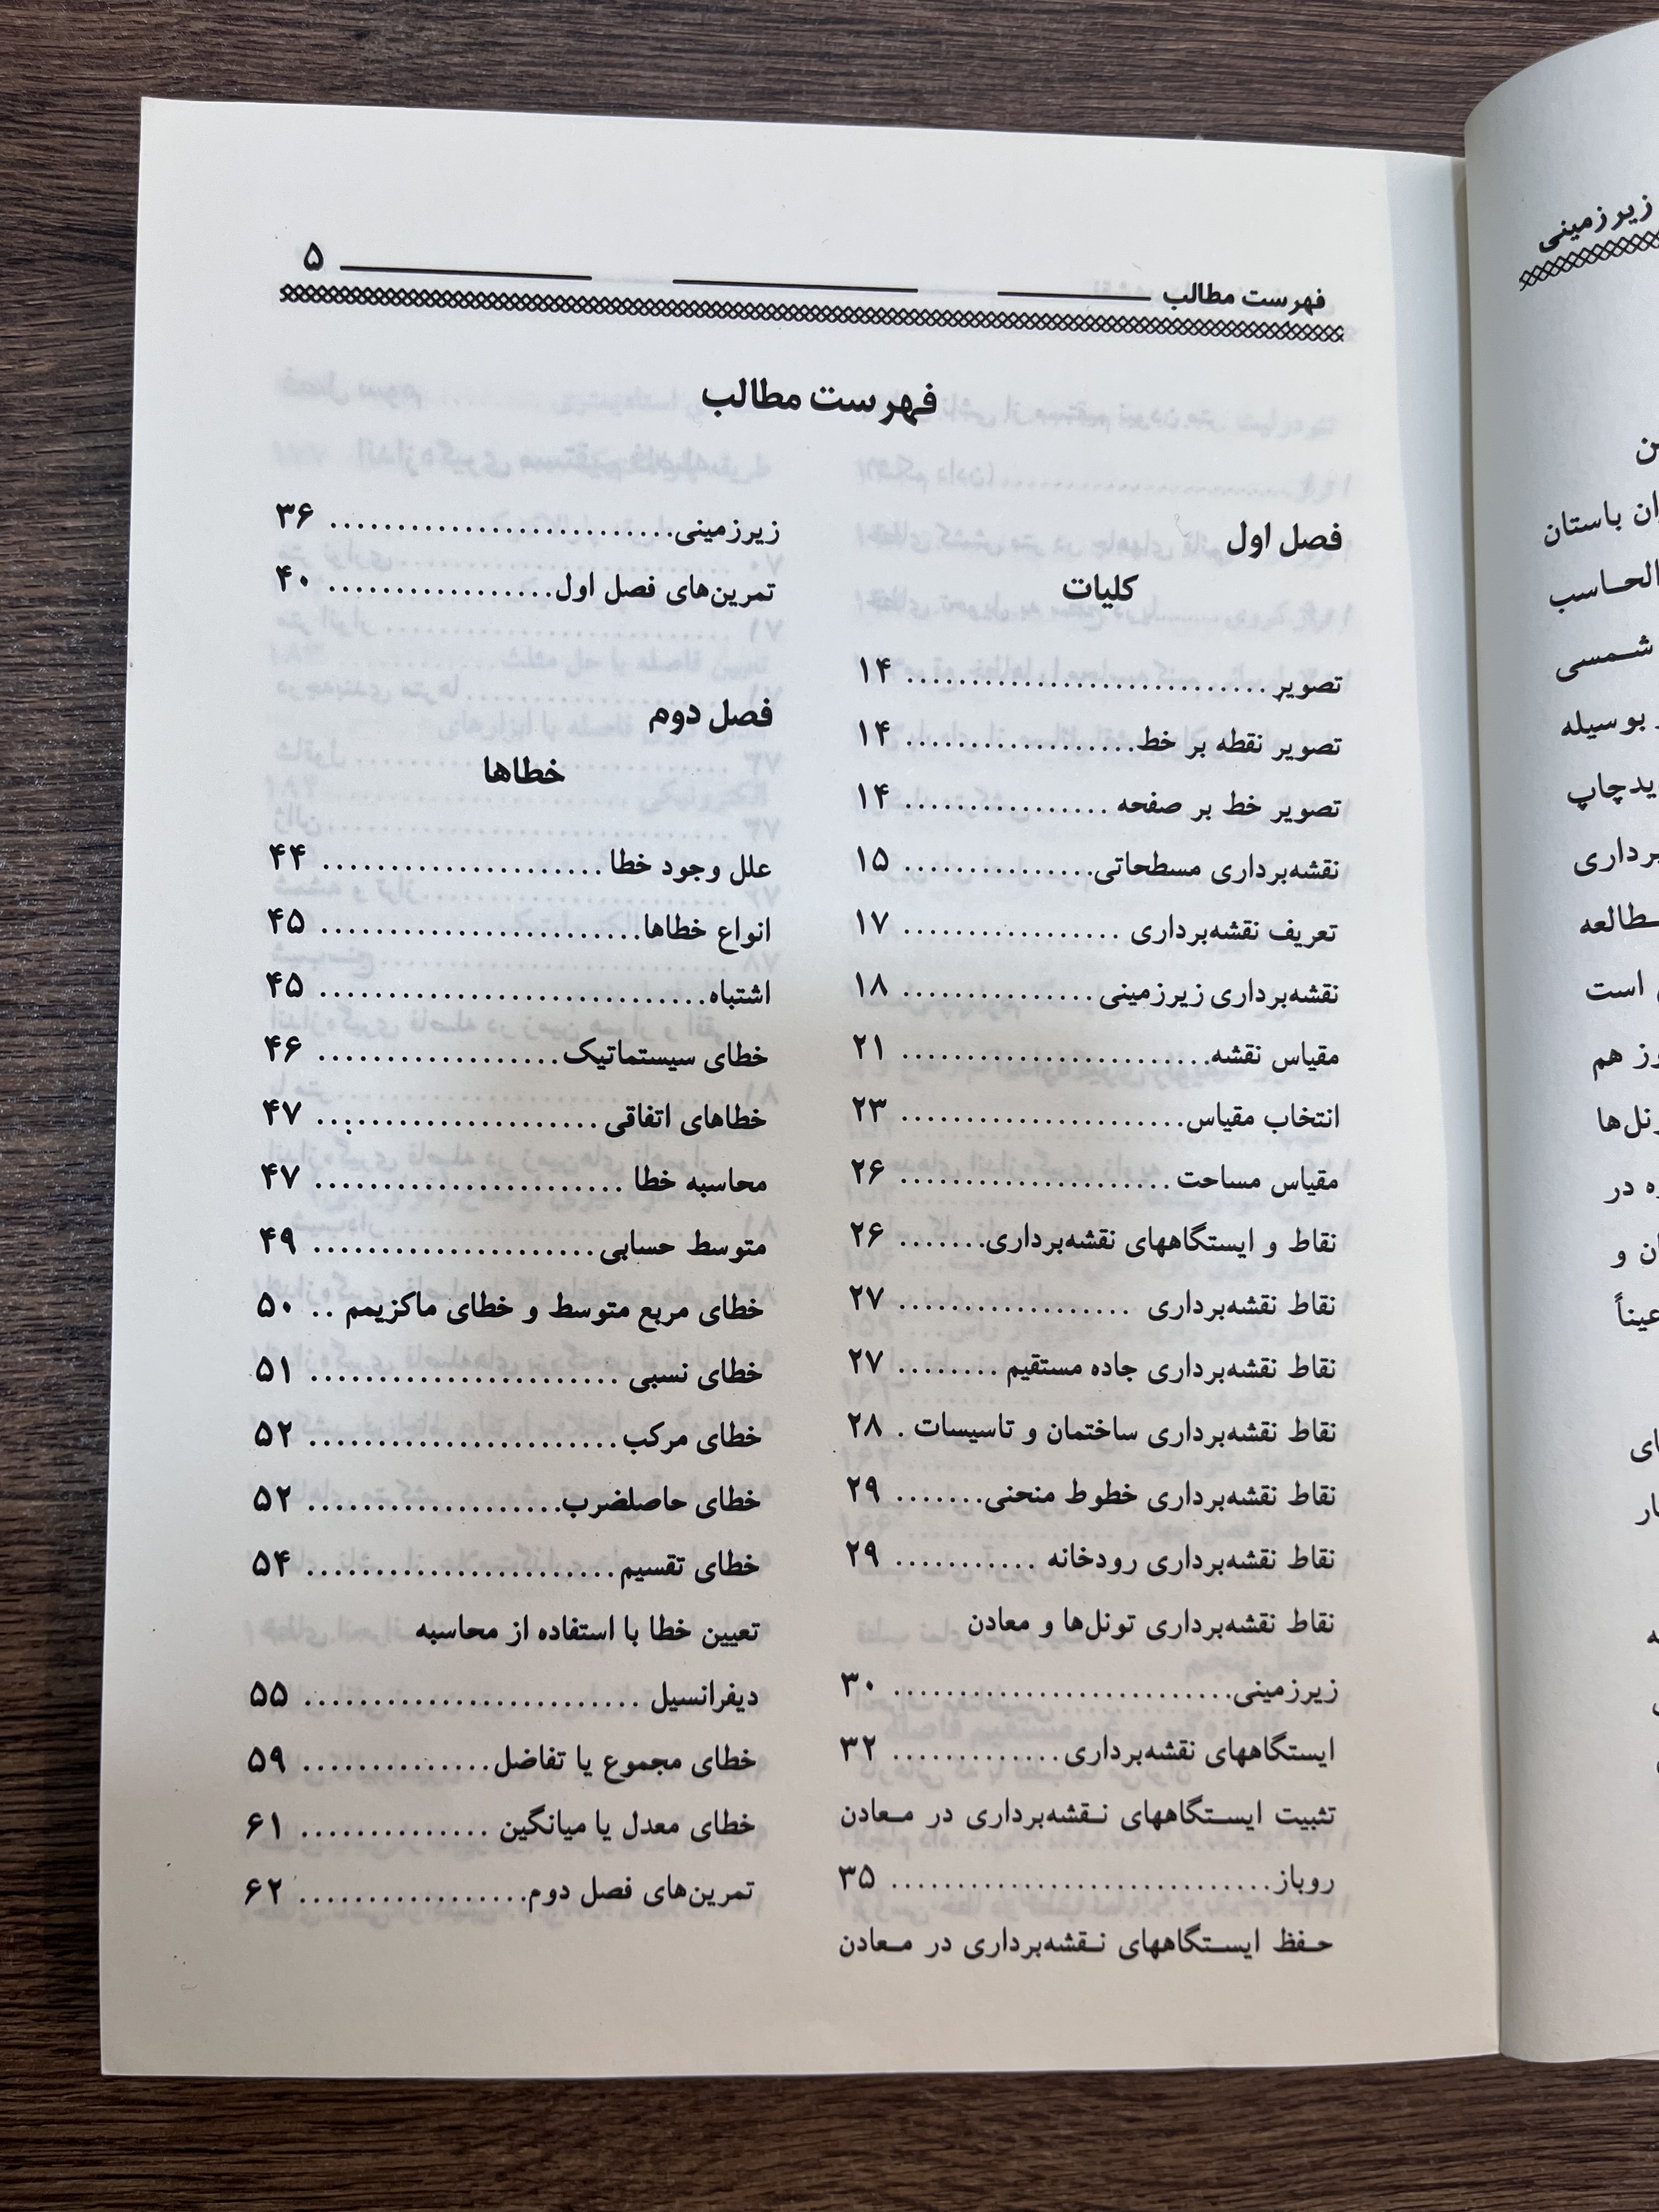 فهرست مطالب ۵
فهرست مطالب
فصل اول
کلیات
تصویر ............................ ۱۴
تصویر نقطه بر خط................. ۱۴
تصویر خط بر صفحه ............... ۱۴
نقشه‌برداری مسطحاتی.............. ۱۵
تعریف نقشه‌برداری ................ ۱۷
نقشه‌برداری زیرزمینی .............. ۱۸
مقیاس نقشه....................... ۲۱
انتخاب مقیاس..................... ۲۳
مقیاس مساحت .................... ۲۶
نقاط و ایستگاههای نقشه‌برداری....... ۲۶
نقاط نقشه‌برداری ................. ۲۷
نقاط نقشه‌برداری جاده مستقیم ........ ۲۷
نقاط نقشه‌برداری ساختمان و تاسیسات . ۲۸
نقاط نقشه‌برداری خطوط منحنی....... ۲۹
نقاط نقشه‌برداری رودخانه ........... ۲۹
نقاط نقشه‌برداری تونل‌ها و معادن
زیرزمینی......................... ۳۰
ایستگاههای نقشه‌برداری............. ۳۲
تثبیت ایستگاههای نقشه‌برداری در معادن
روباز............................. ۳۵
حفظ ایستگاههای نقشه‌برداری در معادن
زیرزمینی.......................... ۳۶
تمرین‌های فصل اول................. ۴۰
فصل دوم
خطاها
علل وجود خطا ..................... ۴۴
انواع خطاها........................ ۴۵
اشتباه............................. ۴۵
خطای سیستماتیک.................. ۴۶
خطاهای اتفاقی ..................... ۴۷
محاسبه خطا ....................... ۴۷
متوسط حسابی..................... ۴۹
خطای مربع متوسط و خطای ماکزیمم .. ۵۰
خطای نسبی ....................... ۵۱
خطای مرکب....................... ۵۲
خطای حاصلضرب................... ۵۲
خطای تقسیم....................... ۵۴
تعیین خطا با استفاده از محاسبه
دیفرانسیل ......................... ۵۵
خطای مجموع یا تفاضل.............. ۵۹
خطای معدل یا میانگین .............. ۶۱
تمرین‌های فصل دوم................. ۶۲
زیرزمینی
باستان
الحاسب
شمسی
بوسیله
چاپ
است
هم
در
و
عیناً